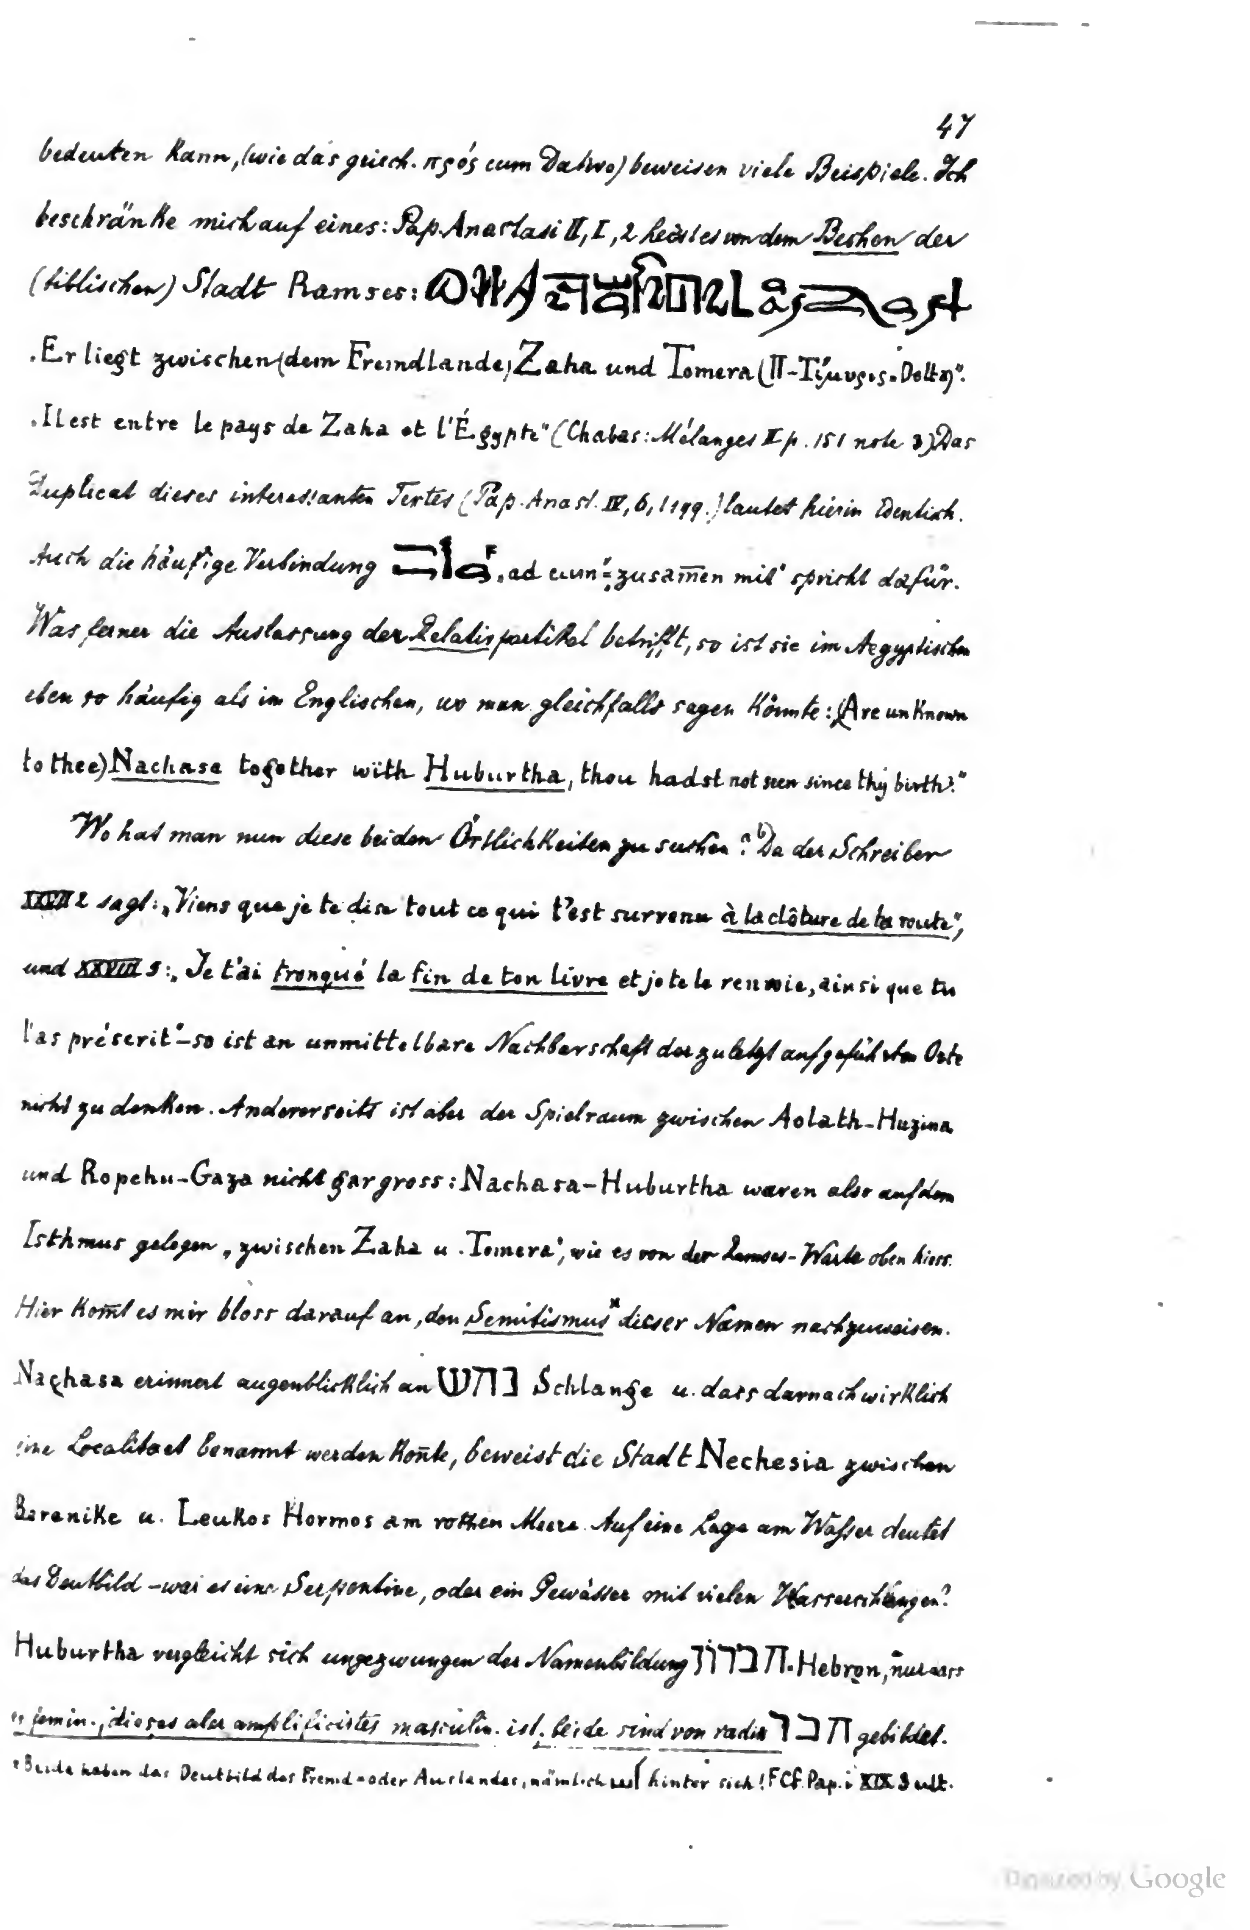 47
bedeuten kann, (wie das griech. πρός cum Dativo) beweisen viele Beispiele. Ich
beschränke mich auf eines: Pap. Anastasi II, I, 2 heisst es von dem Bechen der
(biblischen) Stadt Ramses:
„Er liegt zwischen (dem Fremdlande) Zaha und Tomera (Π-Τίμυρις = Delta)".
„Il est entre le pays de Zaha et l'Égypte" (Chabas: Mélanges II p. 151 note 3) Das
Duplicat dieses interessanten Textes (Pap. Anast. IV, 6, 1 sqq.) lautet hierin identisch.
Auch die häufige Verbindung „ad cum" = „zusam̄en mit" spricht dafür.
Was ferner die Auslassung der Relativpartikel betrifft, so ist sie im Aegyptischen
eben so häufig als im Englischen, wo man gleichfalls sagen könnte: (Are unknown
to thee) Nachasa together with Huburtha, thou hadst not seen since thy birth?"
Wo hat man nun diese beiden Örtlichkeiten zu suchen? Da der Schreiber
XXVII 2 sagt: „Viens que je te dise tout ce qui t'est survenu à la clôture de ta route",
und XXVIII 5: „Je t'ai tronqué la fin de ton livre et je te le renvoie, ainsi que tu
l'as préscrit" – so ist an unmittelbare Nachbarschaft der zuletzt aufgeführten Orte
nicht zu denken. Andererseits ist aber der Spielraum zwischen Aolath-Huzina
und Ropehu-Gaza nicht gar gross: Nachasa-Huburtha waren also auf dem
Isthmus gelegen „zwischen Zaha u. Tomera", wie es von der Ramses-Warte oben hiess.
Hier kom̄t es mir bloss darauf an, den Semitismus* dieser Namen nachzuweisen.
Nachasa erinnert augenblicklich an נחש Schlange u. dass darnach wirklich
eine Localitaet benannt werden kon̄te, beweist die Stadt Nechesia zwischen
Berenike u. Leukos Hormos am rothen Meere. Auf eine Lage am Wasser deutet
das Deutbild – war es eine Serpentine, oder ein Gewässer mit vielen Wasserschlangen?
Huburtha vergleicht sich ungezwungen der Namenbildung חברון = Hebron, nur dass
es femin., dieses aber amplificirtes masculin. ist, beide sind von radix חבר gebildet.
* Beide haben das Deutbild des Fremd- oder Auslandes, nämlich hinter sich! F Cf. Pap. i XIX 9 ult.